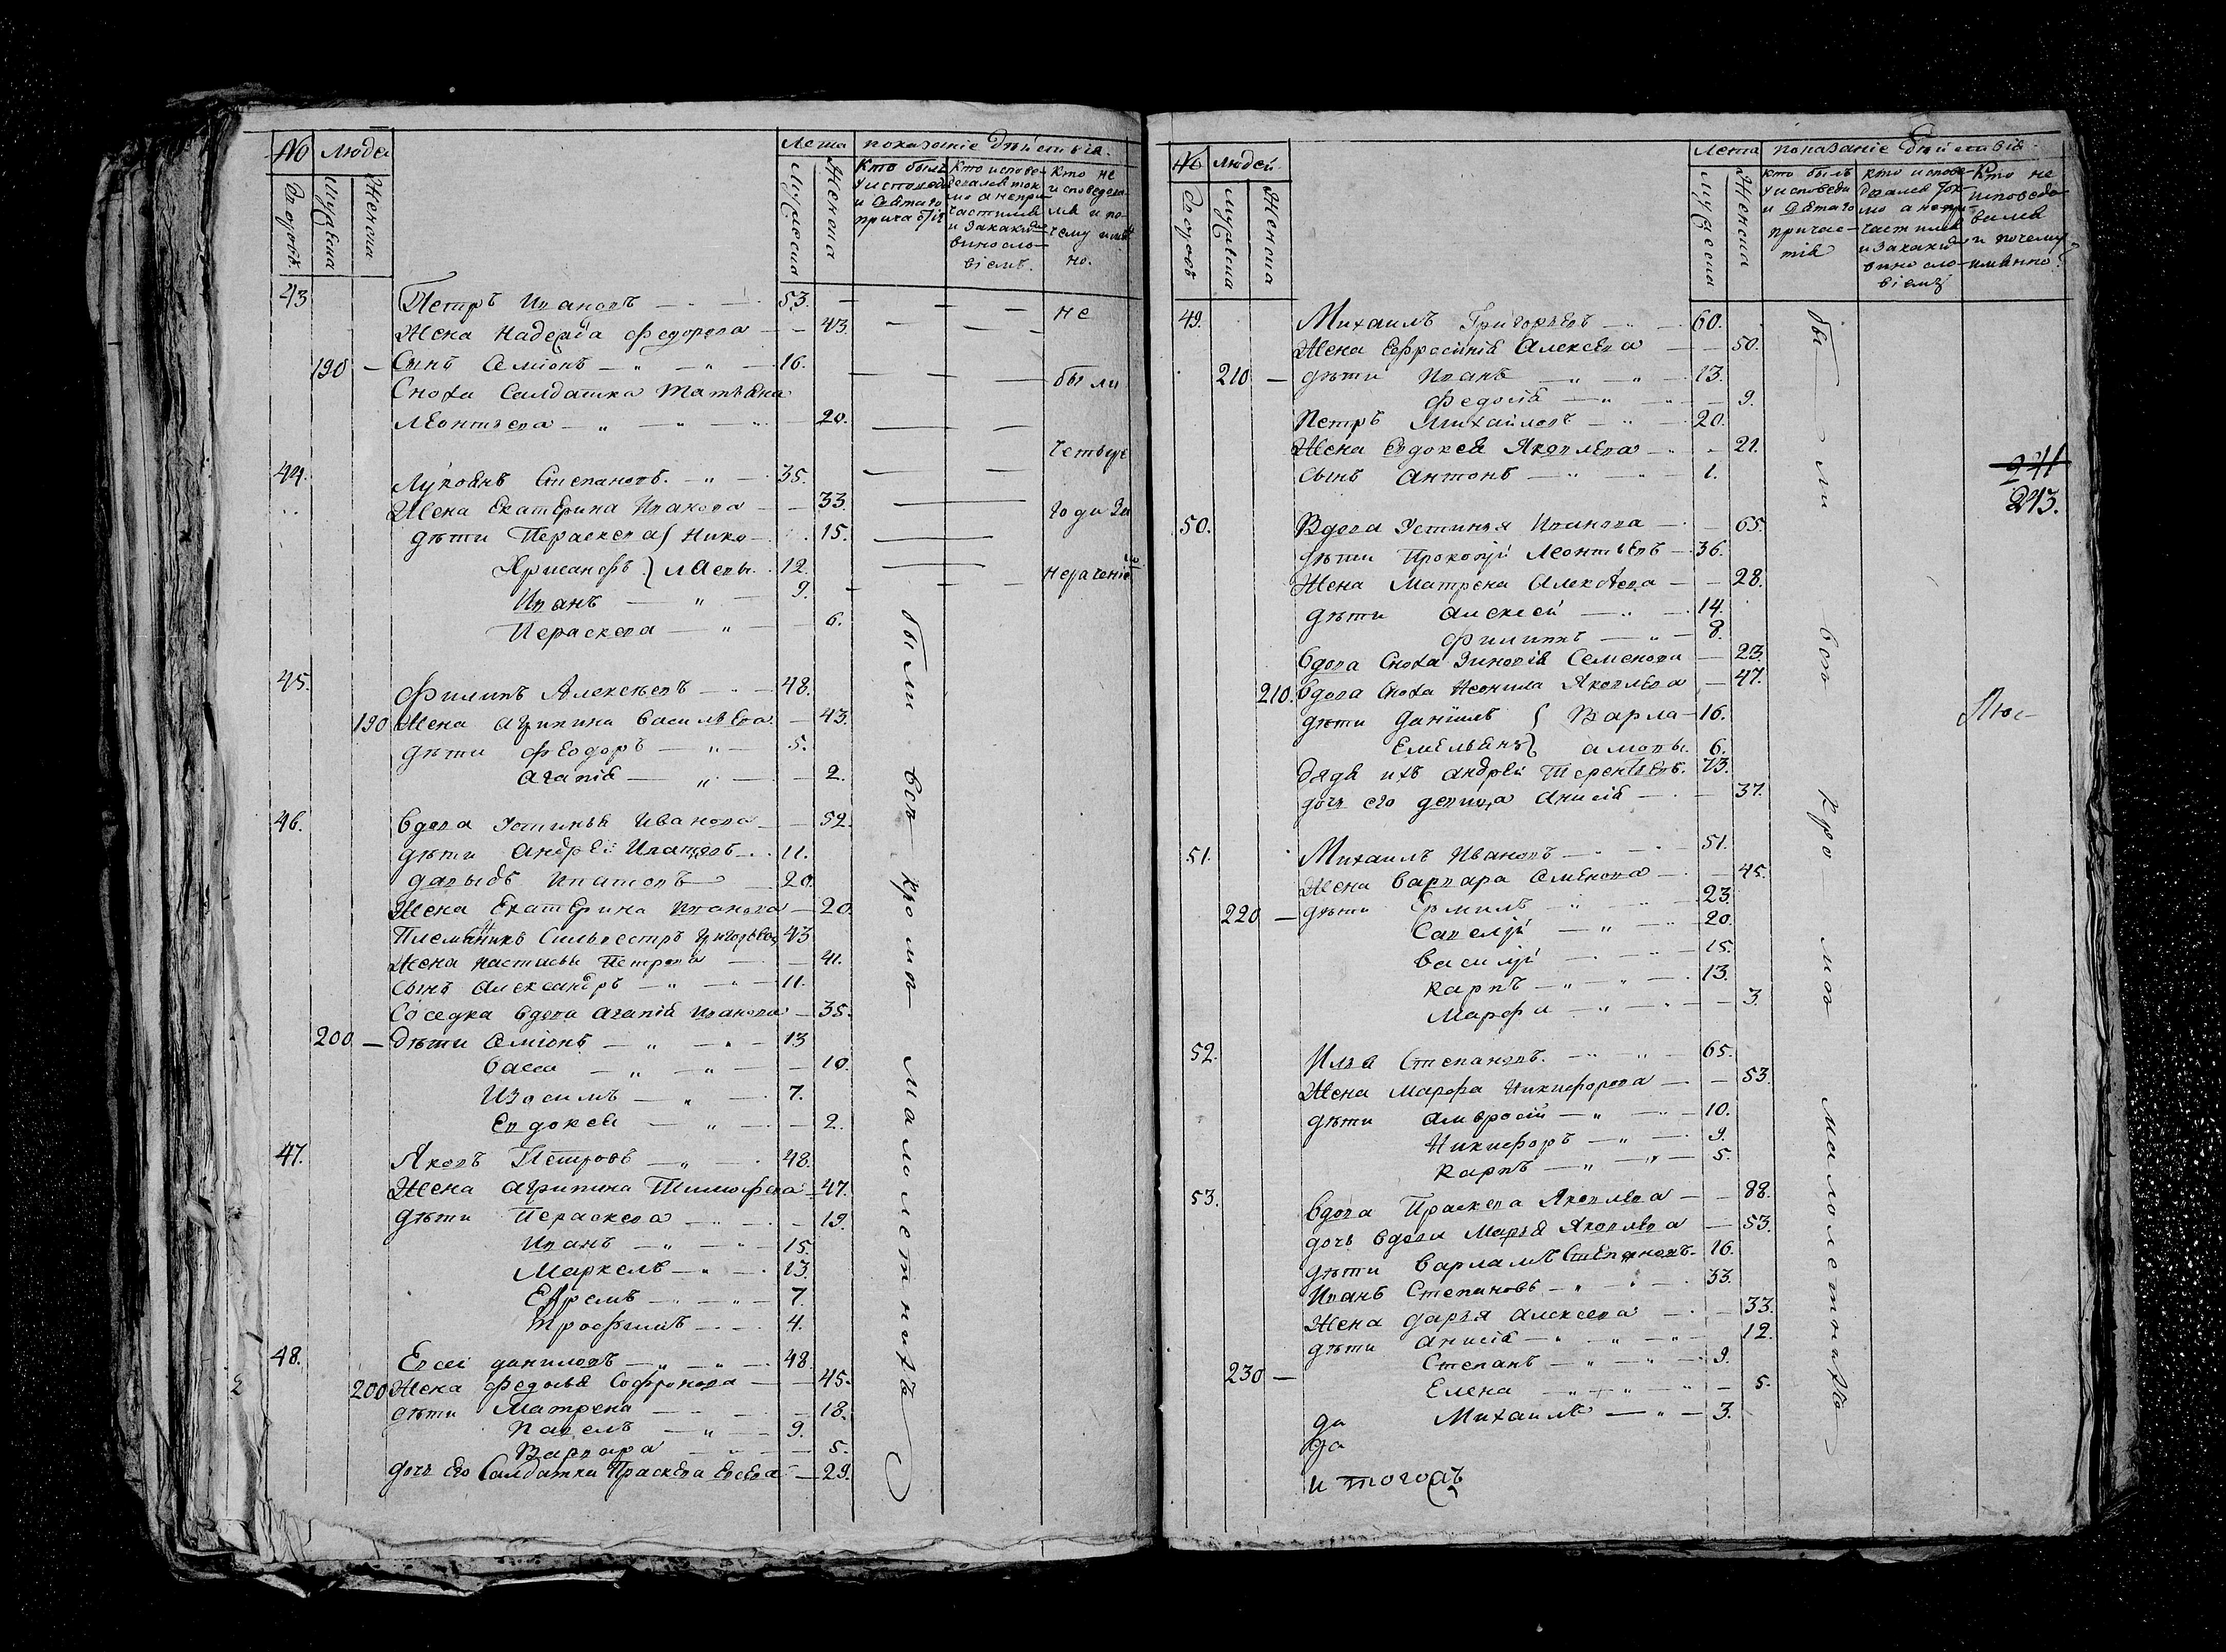 № Люде Лета показаніе дѣйствія.
Дворовъ. Мужеска Женска Мужеска Женска Кто былъ у исповеди и святаго причастія Кто исповедался токмо а непричастился и за какимъ винословіемъ. Кто не исповедался и почему именно.
43 Петръ Ивановъ 53. не
Жена Надежда Федорова 43.
190 Сынъ Семіонъ 16. были
Сноха Салдатка Татьяна
Леонтьева 20.
Четыре
44. Лукоянъ Степановъ. 35.
Жена Екатерина Иванова 33. года За
дѣти Пераскева Нико- 15.
Хрисанфъ. лаевы. 12. нераченіемъ
Иванъ 9.
Пераскева 6.
были всѣ кромѣ малолетнихъ
45. Филипъ Алексѣевъ 48.
190 Жена Агрипина Васильева 43.
дѣти Феодоръ 5.
Агапія 2.
46. Вдова Устинья Иванова 52.
дѣти Андрей Ипатовъ 11.
давыдъ Ипатовъ 20.
Жена Екатерина Иванова 20.
Племянникъ Сильвестръ Григорьевъ 43
Жена Настасья Петрова 41.
Сынъ Александръ 11.
Соседка вдова Агапія Иванова 35.
200 Дѣти Семіонъ 13
Васса 10.
Изосимъ 7.
Евдокея 2.
47. Яковъ Петровъ 48.
Жена Агрипина Тимофева 47.
дѣти Пераскева 19.
Иванъ 15.
Маркелъ 13.
Ефремъ 7.
Трофимъ 4.
48. Евсеі даниловъ 48.
200 Жена Федосья Софронова 45.
дѣти Матрена 18.
Павелъ 9.
Варвара 5.
дочь его Салдатка Праскева Евсева 29.
№ Людей Лета показаніе дѣйствія
Дворовъ мужеска Женска Мужеска Женска кто былъ у исповеди и святаго причастія кто исповедался токмо а непричастился и за какимъ винословіемъ Кто не исповедовался и почему именно?
49. Михаилъ Григорьевъ 60.
Жена Ефросинія Алексева 50.
210 дѣти Иванъ 13.
Федосія 9.
Петръ Михаиловъ 20.
Жена Евдокея Яковлева 21.
Сынъ Антонъ 1.
241
243.
50. Вдова Устинья Иванова 65.
дѣти Прокопій Леонтьевъ 36.
Жена Матрена Алексеева 28.
дѣти Алексей 14.
Филиппъ 8.
вдова Сноха Зиновія Семенова 23.
210. вдова Сноха Неонила Яковлева 47.
дѣти Даніилъ Варла- 16.
Емельянъ амовы. 6.
дядя ихъ Андрей Терентьевъ. 73.
дочь его девица Анисія 37.
были всѣ кромѣ малолетнихъ
51. Михаилъ Ивановъ 51.
Жена Варвара Семенова 45.
220 дѣти Ермилъ 23.
Савелій 20.
Василій 15.
Карпъ 13.
Марфа 3.
52. Илья Степановъ. 65.
Жена Марфа Никифорова 53.
дѣти Амвросій 10.
Никифоръ 9.
Карпъ 5.
53. Вдова Праскева Яковлева 88.
дочь вдова Марья Яковлева 53.
дѣти Варламъ Степановъ. 16.
Иванъ Степановъ 33.
Жена Дарья Алексеева 33.
дѣти Анисія 12.
Степанъ 9.
230 Елена 5.
Михаилъ 3.
да
да
и тогожъ